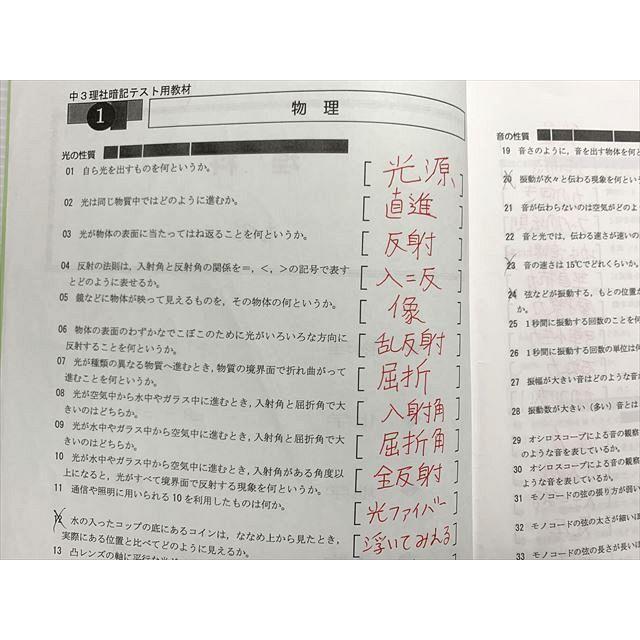 中3理社暗記テスト用教材
1 物 理
光の性質
01 自ら光を出すものを何というか。 [光源]
02 光は同じ物質中ではどのように進むか。 [直進]
03 光が物体の表面に当たってはね返ることを何というか。 [反射]
04 反射の法則は，入射角と反射角の関係を＝，＜，＞の記号で表す
とどのように表せるか。 [入＝反]
05 鏡などに物体が映って見えるものを，その物体の何というか。 [像]
06 物体の表面のわずかなでこぼこのために光がいろいろな方向に
反射することを何というか。 [乱反射]
07 光が種類の異なる物質へ進むとき，物質の境界面で折れ曲がって
進むことを何というか。 [屈折]
08 光が空気中から水中やガラス中に進むとき，入射角と屈折角で大
きいのはどちらか。 [入射角]
09 光が水中やガラス中から空気中に進むとき，入射角と屈折角で大
きいのはどちらか。 [屈折角]
10 光が水中やガラス中から空気中に進むとき，入射角がある角度以
上になると，光がすべて境界面で反射する現象を何というか。 [全反射]
11 通信や照明に用いられる10を利用したものは何か。 [光ファイバー]
12 水の入ったコップの底にあるコインは，ななめ上から見たとき，
実際にある位置と比べてどのように見えるか。 [浮いてみえる]
13 凸レンズの軸に平行な光
音の性質
19 音さのように，音を出す物体を何と
20 振動が次々と伝わる現象を何という
21 音が伝わらないのは空気がどのよ
22 音と光では，伝わる速さが速いの
23 音の速さは15℃でどれくらいか。
24 弦などが振動する，もとの位置か
か。
25 1秒間に振動する回数のことを何
26 1秒間に振動する回数の単位は何
27 振幅が大きい音はどのような音か
28 振動数が大きい（多い）音とは
29 オシロスコープによる音の観察
のような音を表しているか。
30 オシロスコープによる音の観察
ような音を表しているか。
31 モノコードの弦の張り方が弱い
32 モノコードの弦の太さが細い
33 モノコードの弦の長さが長い